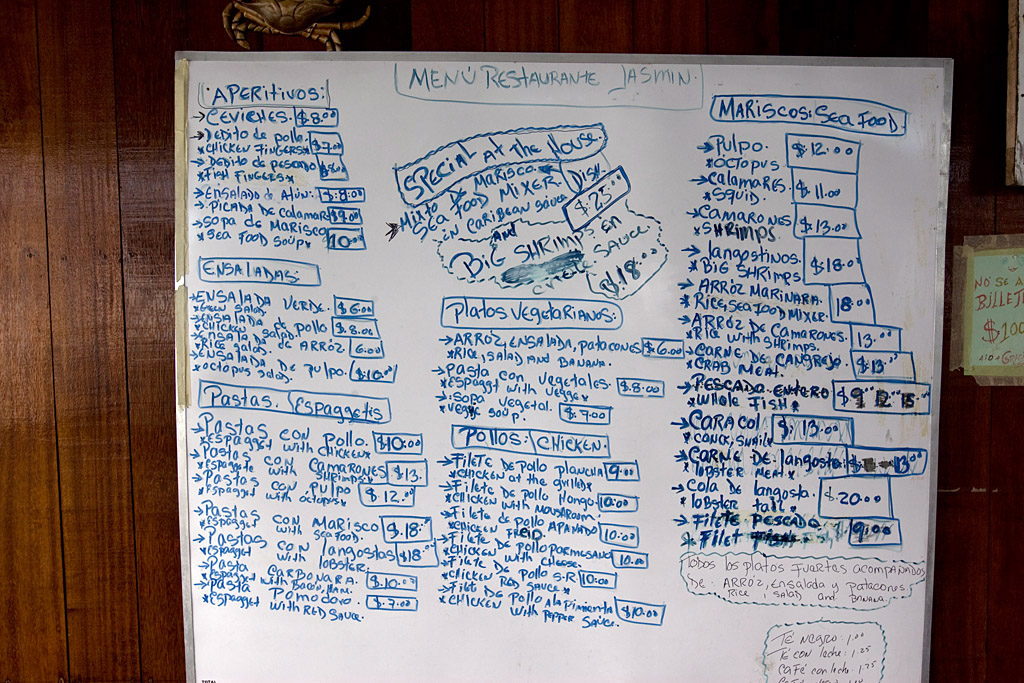 MENÚ RESTAURANTE JASMIN.
APERITIVOS:
→ CEVICHES. $8.00
→ DEDITO DE POLLO. $7.00
*CHICKEN FINGERS*
→ DEDITO DE PESCADO $8.00
*FISH FINGERS*
→ ENSALADA DE ATÚN. $:8:00
→ PICADA DE CALAMAR $9.00
→ SOPA DE MARISCO 10.00
*SEA FOOD SOUP*
ENSALADAS:
→ ENSALADA VERDE. $6.00
*GREEN SALAD.
→ ENSALADA DE POLLO $.8.00
*CHICKEN SALAD.
→ ENSALADA DE ARRÓZ. 6.00
*RICE SALAD.
→ ENSALADA DE PULPO. $10.00
*OCTOPUS SALAD.
PASTAS. ESPAGGETIS
→ PASTAS CON POLLO. $10.00
*ESPAGGET WITH CHICKEN*
→ PASTAS CON CAMARONES $13.
*ESPAGGETE WITH SHRIMPS*
→ PASTAS CON PULPO $.12.00
*ESPAGGET WITH OCTOPUS*
→ PASTAS CON MARISCO $.18.
*ESPAGGET WITH SEAFOOD.
→ PASTAS CON LANGOSTAS $18.
*ESPAGGET WITH LOBSTER.
→ PASTA CARBONARA. $.10.00
*ESPAGGET WITH BACON, HAM.
→ PASTA POMODORO. $.7.00
*ESPAGGET WITH RED SAUCE.
SPECIAL AT THE HOUSE.
→ MIXTO DE MARISCO. DISH.
SEA FOOD MIXER. $.25.00
EN CARIBEAN SOUCE
AND
BIG SHRIMPS EN
SAUCE.
$.18.00
PLATOS VEGETARIANOS:
→ ARRÓZ, ENSALADA, PATACONES $6.00
*RICE, SALAD AND BANANA.
→ PASTA CON VEGETALES. $.8.00
*ESPAGGET WITH VEGGE*
→ SOPA VEGETAL. $.7.00
*VEGGE SOUP.
POLLOS: CHICKEN.
→ FILETE DE POLLO PLANCHA 9.00
*CHICKEN AT THE GRILLED*
→ FILETE DE POLLO HONGO 10:00
*CHICKEN WITH MOUSAROOM.
→ FILETE DE POLLO APANADO 10:00
*CHICKEN FREID.
→ FILETE DE POLLO PARMESANO 10.00
*CHICKEN WITH CHEESE.
→ FILETE DE POLLO S.R. 10:00
*CHICKEN RED SAUCE*
→ FILETE DE POLLO A LA PIMIENTA $10.00
*CHICKEN WITH PEPPER SAUCE.
MARISCOS: SEA FOOD
→ PULPO. $12.00
*OCTOPUS
→ CALAMARES. $.11.00
*SQUID.
→ CAMARONES $.13.00
*SHRIMPS.
→ LANGOSTINOS. $18.00
*BIG SHRIMPS
→ ARRÓZ MARINARA. 18.00
*RICE, SEA FOOD MIXER.
→ ARRÓZ DE CAMARONES. 13.00
*RICE WITH SHRIMPS.
→ CARNE DE CANGREJO. $13.00
*CRAB MEAT.
→ PESCADO ENTERO $9 12 15
*WHOLE FISH*
→ CARACOL $.13.00
*CONCK, SNAIL*
→ CARNE DE LANGOSTA: $ 13.00
*LOBSTER MEAT*
→ COLA DE LANGOSTA. $.20.00
*LOBSTER TAIL*
→ FILETE PESCADO $9.00
*FILET FISH
TODOS LOS PLATOS FUERTES ACOMPAÑADOS
DE: ARRÓZ, ENSALADA Y PATACONES,
RICE, SALAD AND BANANA.
TÉ NEGRO: 1.00
TÉ CON LECHE: 1.25
CAFÉ CON LECHE 1.75
NO SE A
BILLET
$100